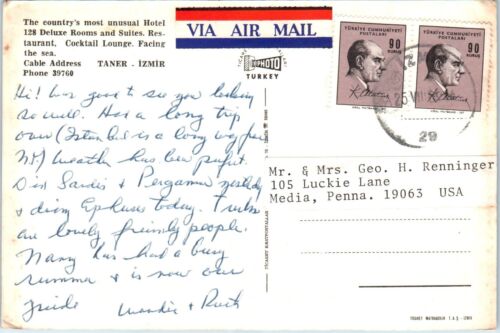 The country's most unusual Hotel
128 Deluxe Rooms and Suites. Res-
taurant, Cocktail Lounge. Facing
the sea.
Cable Address TANER - İZMİR
Phone 39760
VIA AIR MAIL
PHOTO
TURKEY
TÜRKİYE CUMHURİYETİ
POSTALARI
90
KURUŞ
K. Atatürk
TÜRKİYE CUMHURİYETİ
POSTALARI
90
KURUŞ
K. Atatürk
29
Hi! good to see you looking
so well. Had a long trip
over (Istanbul is a long way from
NY) Weather has been perfect.
Did Sardis & Pergamum yesterday
& doing Ephesus today. Turks
are lovely friendly people.
Nancy has had a busy
summer & is now our
guide Ruth
Mr. & Mrs. Geo. H. Renninger
105 Luckie Lane
Media, Penna. 19063 USA
TİCARET KARTPOSTALLARI
TİCARET MATBAACILIK T.A.Ş. - İZMİR